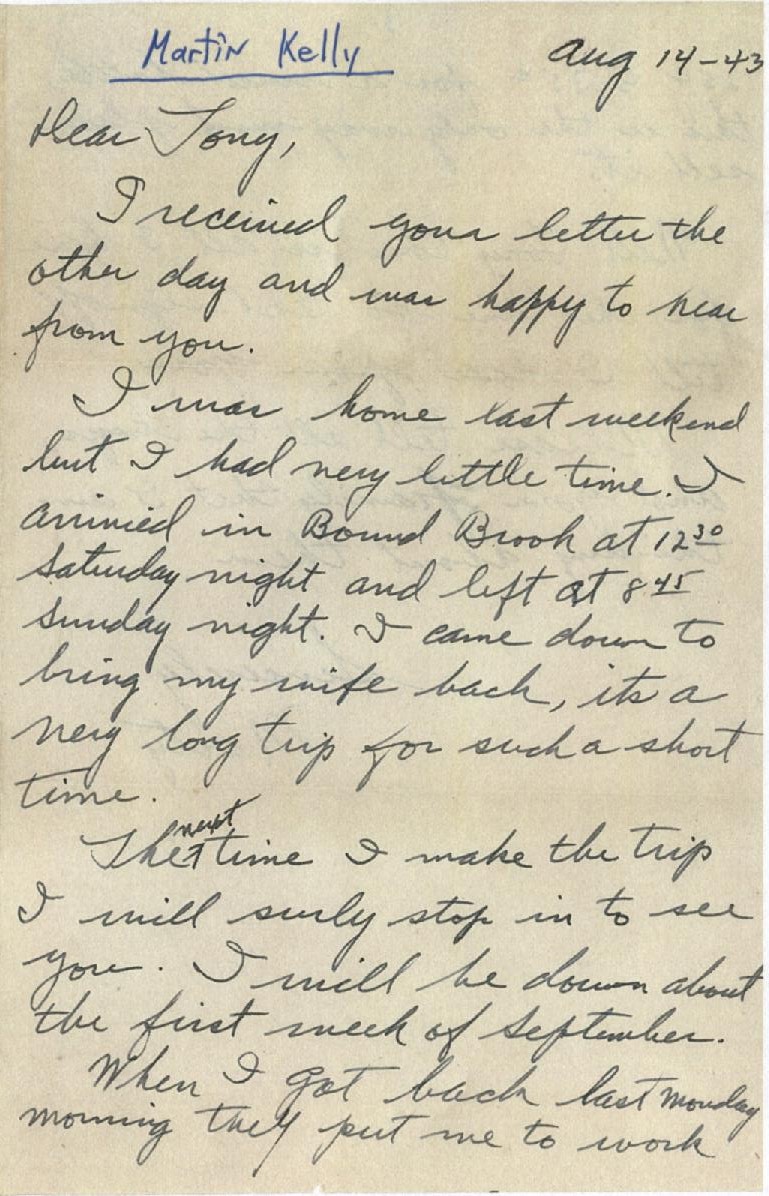 Martin Kelly
Aug 14-43
Dear Tony,
I received your letter the
other day and was happy to hear
from you.
I was home last weekend
but I had very little time. I
arrived in Bound Brook at 12 30
Saturday night and left at 8 45
Sunday night. I came down to
bring my wife back, its a
very long trip for such a short
time.
The next time I make the trip
I will surly stop in to see
you. I will be down about
the first week of September.
When I got back last monday
morning they put me to work